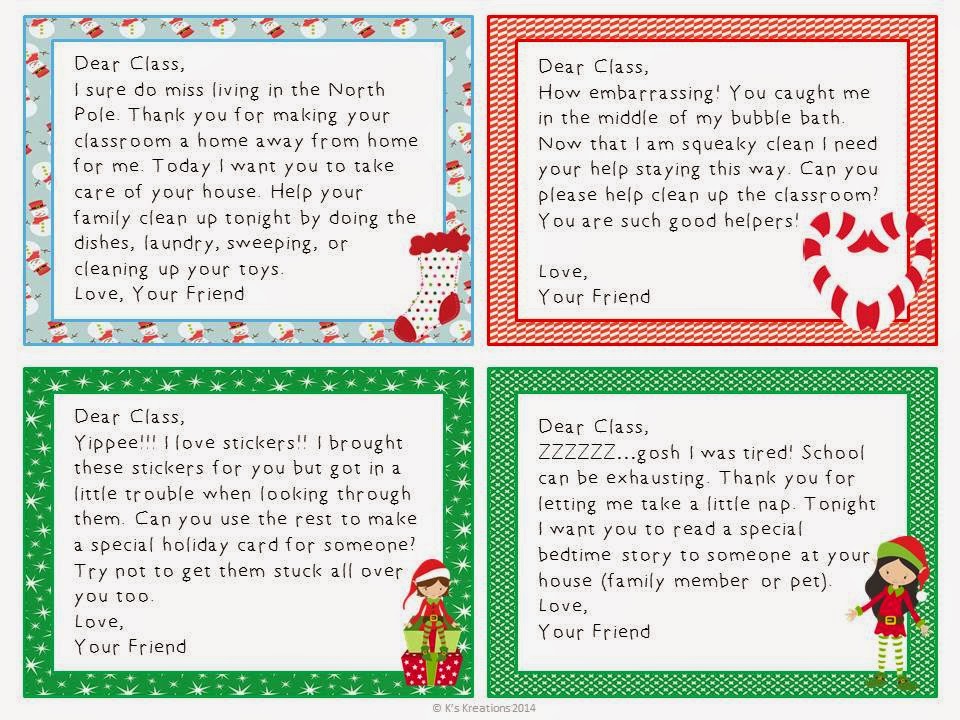 Dear Class,
I sure do miss living in the North
Pole. Thank you for making your
classroom a home away from home
for me. Today I want you to take
care of your house. Help your
family clean up tonight by doing the
dishes, laundry, sweeping, or
cleaning up your toys.
Love, Your Friend
Dear Class,
How embarrassing! You caught me
in the middle of my bubble bath.
Now that I am squeaky clean I need
your help staying this way. Can you
please help clean up the classroom?
You are such good helpers!
Love,
Your Friend
Dear Class,
Yippee!!! I love stickers!! I brought
these stickers for you but got in a
little trouble when looking through
them. Can you use the rest to make
a special holiday card for someone?
Try not to get them stuck all over
you too.
Love,
Your Friend
Dear Class,
ZZZZZZ...gosh I was tired! School
can be exhausting. Thank you for
letting me take a little nap. Tonight
I want you to read a special
bedtime story to someone at your
house (family member or pet).
Love,
Your Friend
© K's Kreations2014